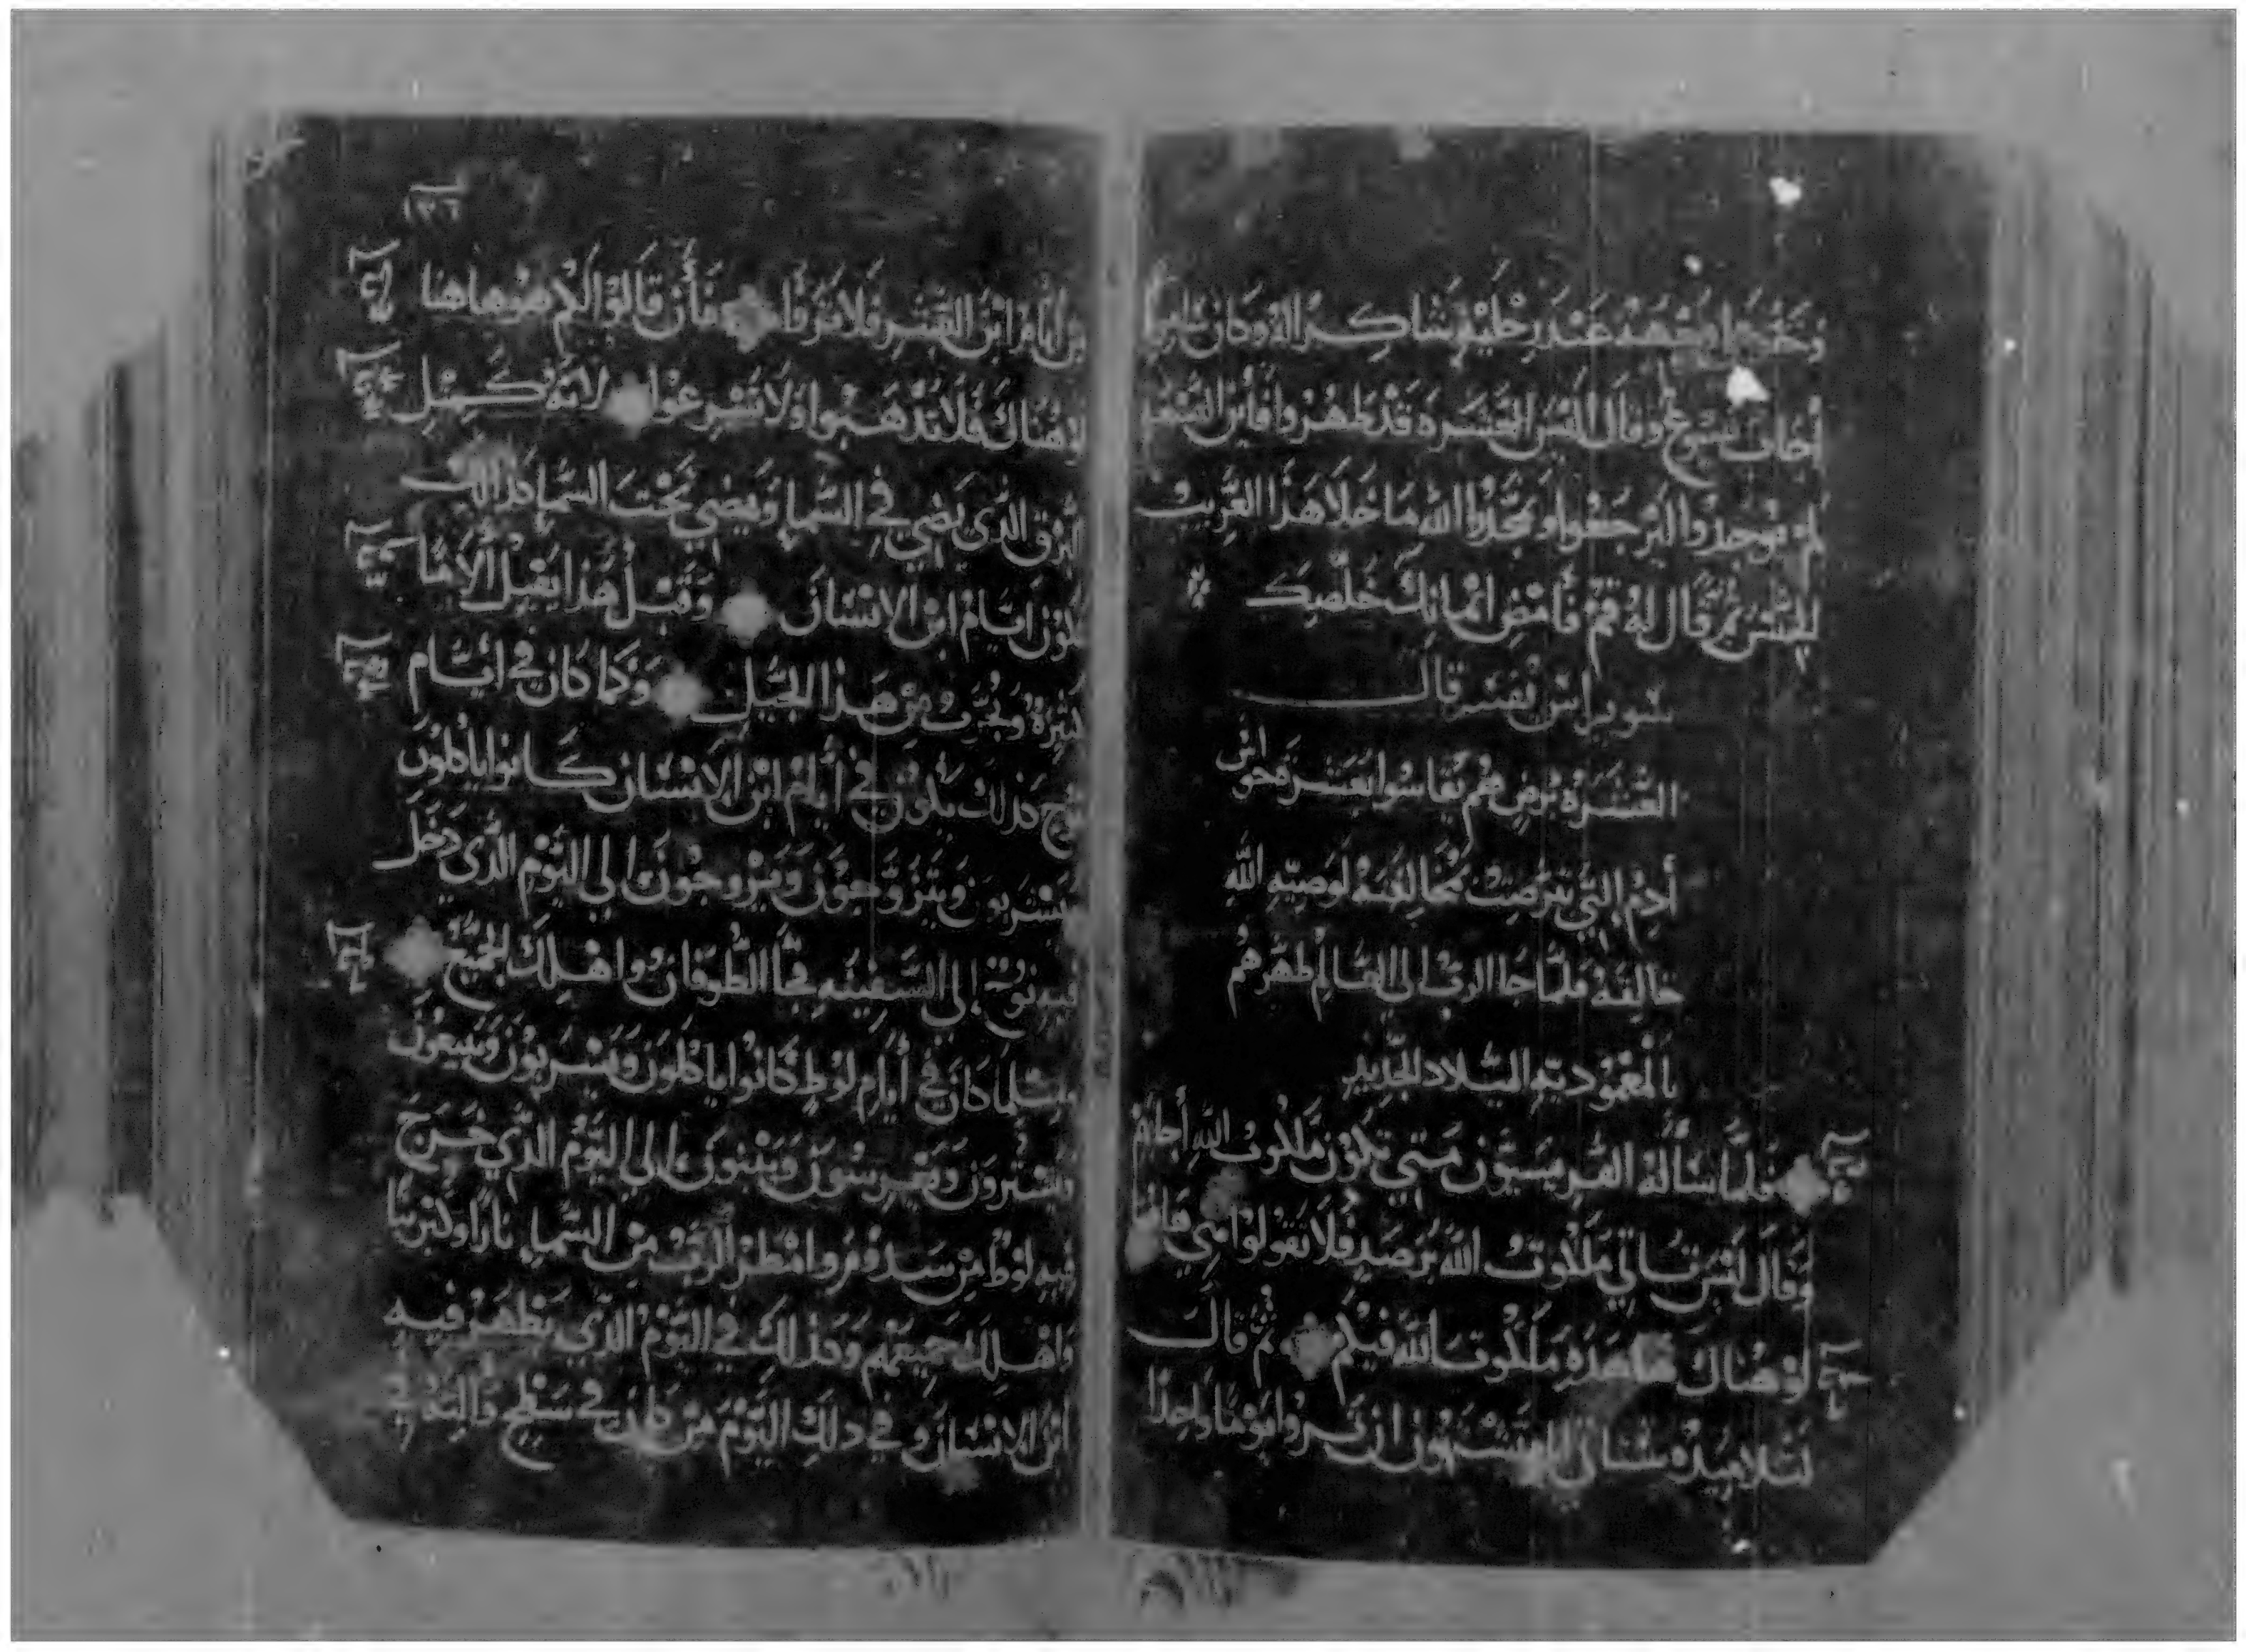 وَخَرَّ علي وجهه عِند رِجليْهِ شاكِرًا لهُ وَكان سَامِريًا
أجَابَ يَسُوع وقال أليْسَ العَشَرَه قد طَهُروا فأين التِسْعَه
لم يُوجدُوا ليَرْجعُوا ويمجّدُوا الله مَا خَلا هَذا الغَرِيبْ
الجنْسْ ثم قال لهُ قمْ فَأمْضِ ايْمانِكَ خَلّصَكَ
قالــــ
العَشَرَهْ بُرْصٍ هُمْ
أدم التي بَرَصِتْ مُخَالِفَهْ لوَصِيّهِ اللهِ
خالِفَهْ فلمّا جَا الربْ الي العَالِم طَهّرَهُمْ
بالمَعْمُوديَهِ الميلاد الجَدِيدِ
فلمَّا سَألهُ الفَريسيُّون مَتي تكوْن مَلكُوتْ اللهِ أجابَهُمْ
وقال لَيْسَ تاتي مَلكوتْ الله برَصَدٍ فلا تقولوُا هي هاهنا
اوْ هُناكَ هَاهذِهِ مَلَكوت اللهُ فِيكمْ ثمْ قالَــ
لتلاميذهْ سَتاتي ايام تشتهون ان تروا يَوْمًا واحِدًا
١٣٦
مِن أيام ابْن البَشَرِ فلا تَرَوْنَ فأن قالوْا لكمْ هُوهاهنا
اوْهُناكَ فَلا تَذْهَبوا ولا تُسْرِعُوا لانهُ كَمِثلِ
البَرْق الذي يضي في السّما ويضي تحْتَ السّما كذلكَ
تكون ايّامْ ابْن الانسَان وقبل هَذا يَقْبلْ ألامًا
كَثِيرَهْ ويُجَرّبُ مِنْ هَذا الجيْلِ وَكما كان في أيّامِ
نوح كذلكْ يكون في أيامْ ابْن الانْسَان كَانوا ياكلونَ
ويَشْرَبون وَيَتَزَوَّجوْن وَيُزوّجُوْنَ الي اليَوْمِ الذي دَخَلَ
فيه نوح الي السَفينَهِ فجَا الطُوفانْ واهْلكَ الجَمْيعْ
ومثلمَا كانَ في أيامِ لوُطٍ كَانُوا ياكلوْنَ وَيَشْرَبوْن وَيَبيعُونَ
ويَشترونَ وَيَغْرسُونَ وَيَبْنونَ الي اليَوْم الذي خَرَجَ
فيهِ لوْطُ مِنْ سَدُوْمْ وامْطَرْ الربْ مِنْ السّما نارًا وكبْرِيتا
واهْلكَ جَميعَهُم وَكذلكَ في اليَوْمِ الذي يَظهَرْ فيه
ابْن الانسَان وفي ذلكَ اليَوْمَ مَن كان في سَطحٍ وَاليَتهْ في